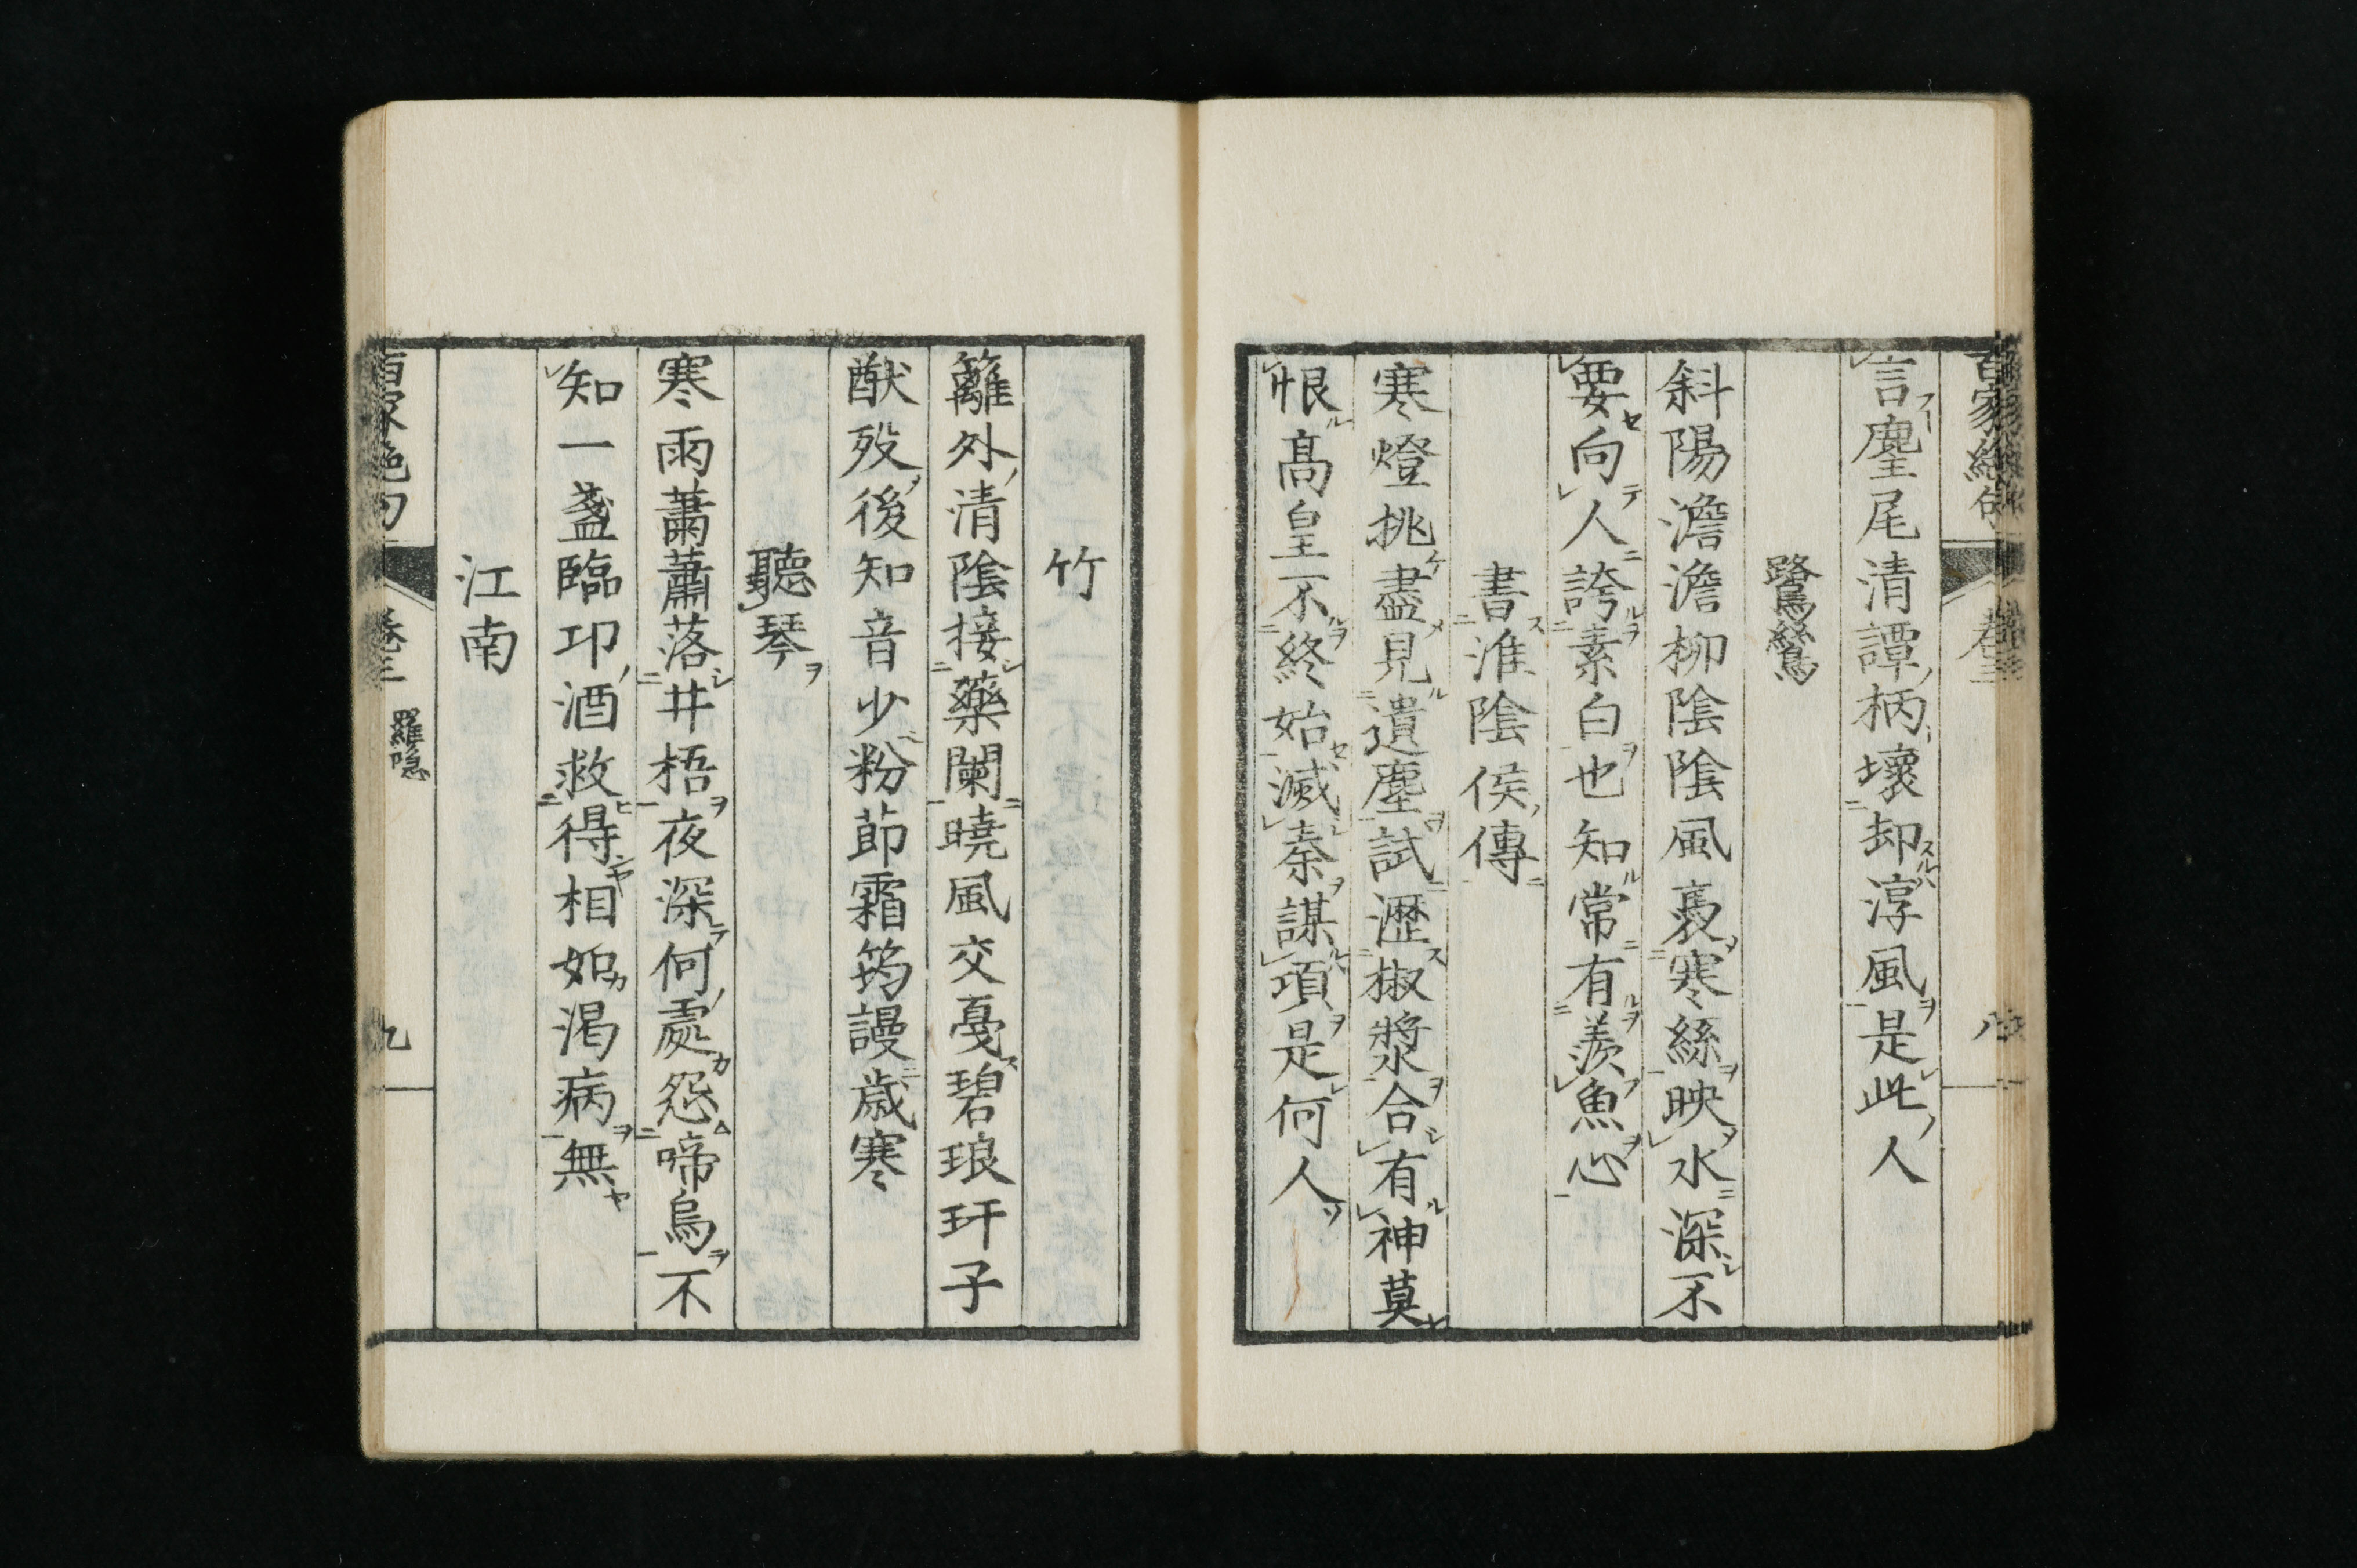 言麈尾清譚柄壞却淳風是此人
鷺鷥
斜陽澹澹柳陰陰風裊寒絲映水深不
要向人誇素白也知常有羨魚心
書淮陰侯傳
寒燈挑盡見遺塵試瀝椒漿合有神莫
恨高皇不終始滅秦謀項是何人
竹
籬外清陰接藥闌曉風交戛碧琅玕子
猷歿後知音少粉節霜筠謾歲寒
聽琴
寒雨蕭蕭落井梧夜深何處怨啼烏不
知一盞臨邛酒救得相如渴病無
江南
百家絶句
卷三
羅隱
九